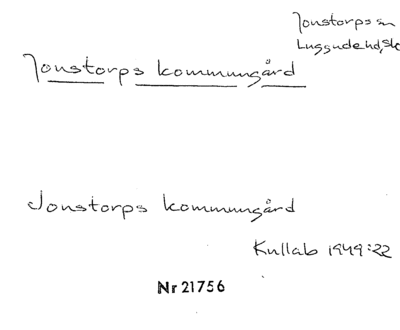 Jonstorps sn
Luggude hd, Sk
Jonstorps kommungård
Jonstorps kommungård
Kullab 1949:22
Nr 21756